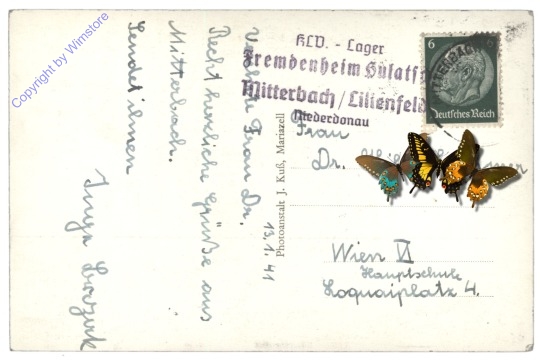 Copyright by Wimstore
13.1.41
Frau Dr.
Recht herzliche Grüße aus
Mitterbach.
Sendet ihnen
Inge
Photoanstalt J. Kuß, Mariazell
KLV. - Lager
Fremdenheim
Mitterbach/Lilienfeld
Niederdonau
6
Deutsches Reich
Frau
Dr.
Wien VI
Hauptschule
Loquaiplatz 4.